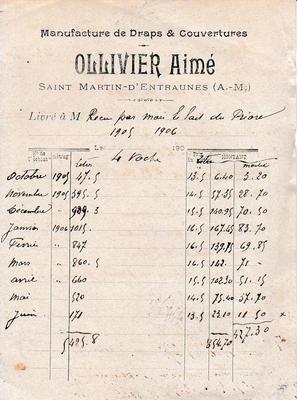 Manufacture de Draps & Couvertures
OLLIVIER Aimé
SAINT MARTIN-D'ENTRAUNES (A.-M.)
Livré à M Recu par moi le lait du Prieuré
1905 1906
Le 4 Vache 190
MONTANT
Litres moitié
Octobre 1905 47.5 13.5 6.40 3.20
Novembre 1905 395.5 14.5 57.35 28.70
Décembre " 909.3 15.5 140.95 70.50
Janvier 1906 1015 16.5 167.45 83.70
Février " 847 16.5 139.75 69.85
Mars " 860.5 16.5 142. 71 -
avril " 660 15.5 102.30 51.15
Mai 520 14.5 75.40 37.70
Juin 171 13.5 23.10 11.50 x
5425.8 854.70 427.30